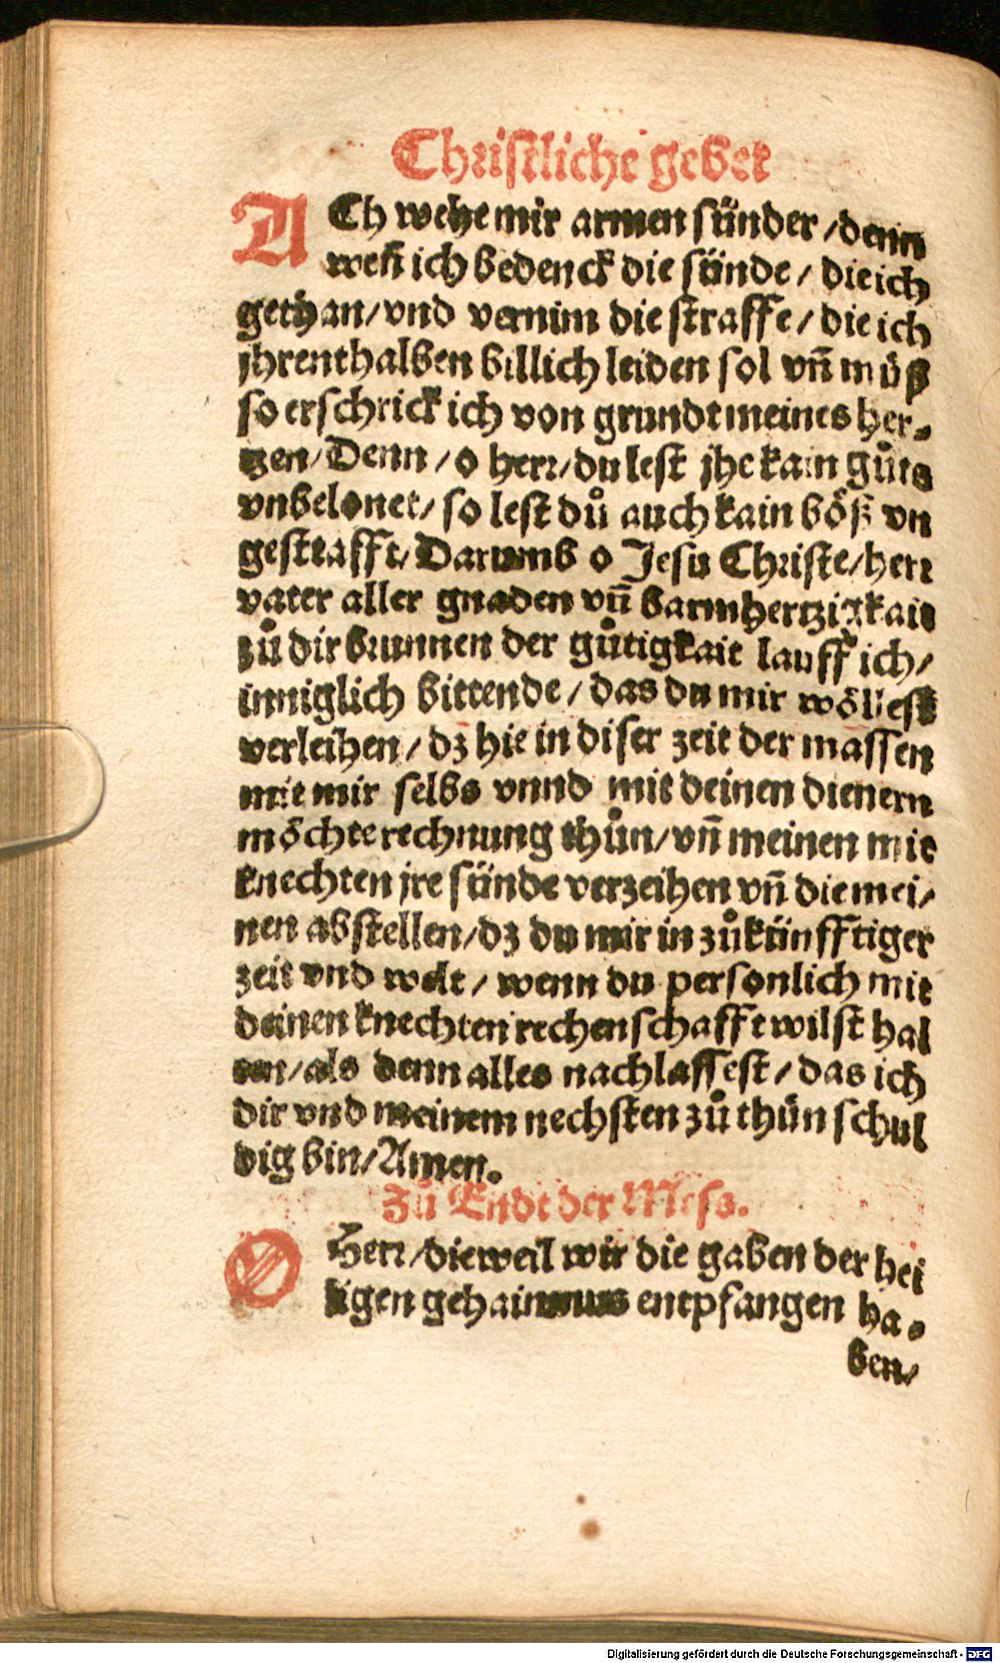 Christliche gebet
ACh wehe mir armen sünder / denn
weñ ich bedenck die sünde / die ich
gethan / vnd vernim die straffe / die ich
jhrenthalben billich leiden sol vñ müß
so erschrick ich von grundt meines her-
tzen / Denn / o herr / du lest jhe kain gůts
vnbelonet / so lest dů auch kain böß vn
gestrafft / Darumb o Jesu Christe / herr
vater aller gnaden vñ barmhertzigkait
zů dir brunnen der gůtigkait lauff ich /
inniglich bittende / das du mir wöllest
verleihen / dz hie in diser zeit der massen
mit mir selbs vnnd mit deinen dienern
möchte rechnung thůn / vñ meinen mit
knechten jre sünde verzeihen vñ die mei /
nen abstellen / dz du mir in zůkünfftiger
zeit vnd welt / wenn du personlich mit
deinen knechten rechenschafft wilst hal
ten / als denn alles nachlassest / das ich
dir vnd meinem nechsten zů thůn schul
dig bin / Amen.
Zů Endt der Mess.
O Herr / dieweil wir die gaben der hei
ligen gehaimnus entpfangen ha-
ben /
Digitalisierung gefördert durch die Deutsche Forschungsgemeinschaft - DFG